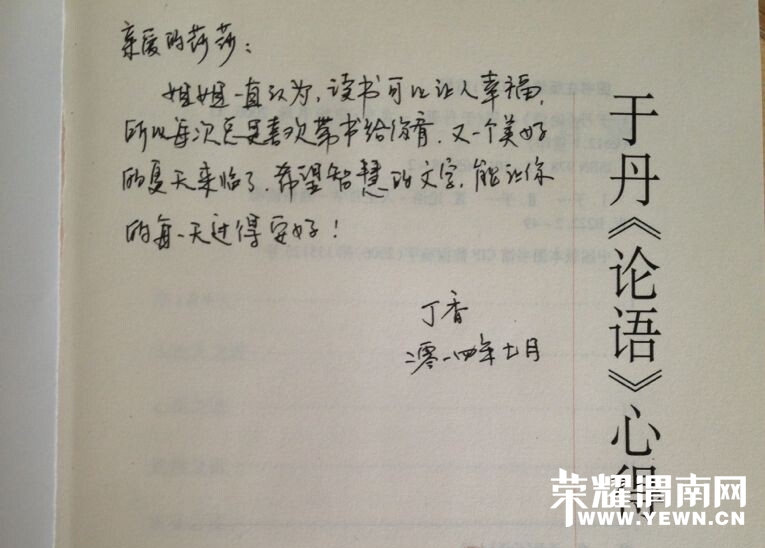 亲爱的莎莎：
姐姐一直认为，读书可以让人幸福，
所以每次总是喜欢带书给你看，又一个美好
的夏天来临了，希望智慧的文字，能让你
的每一天过得安好！
丁香
二零一四年七月
于丹《论语》心得
荣耀渭南网
WWW.YEWN.CN